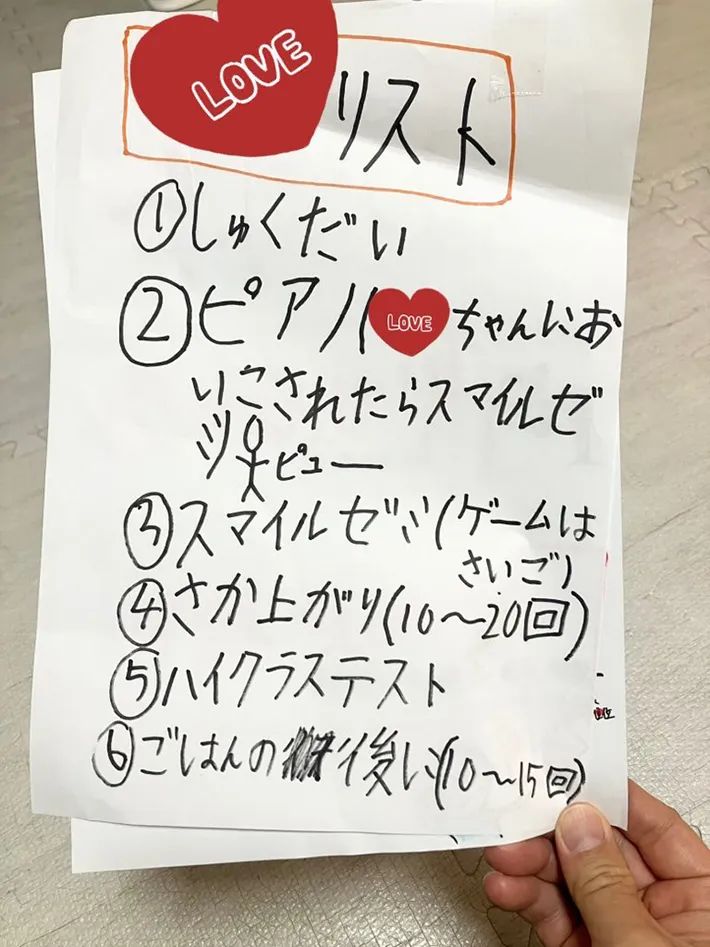 LOVE リスト
①しゅくだい
②ピアノ(LOVEちゃんにお
いこされたらスマイルゼ
ピュー
③スマイルゼミ(ゲームは
さいご)
④さか上がり(10〜20回)
⑤ハイクラステスト
⑥ごはんの後い(10〜15回)